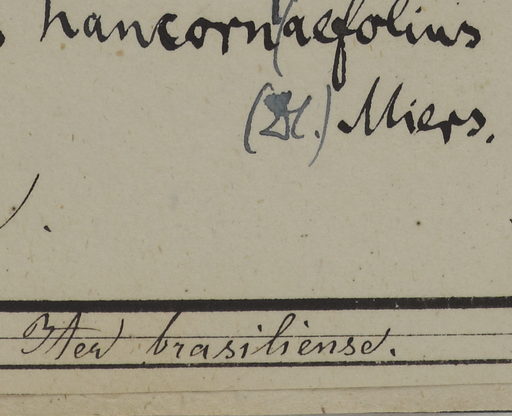 hancorniaefolius
(DC.) Miers.
Iter brasiliense.